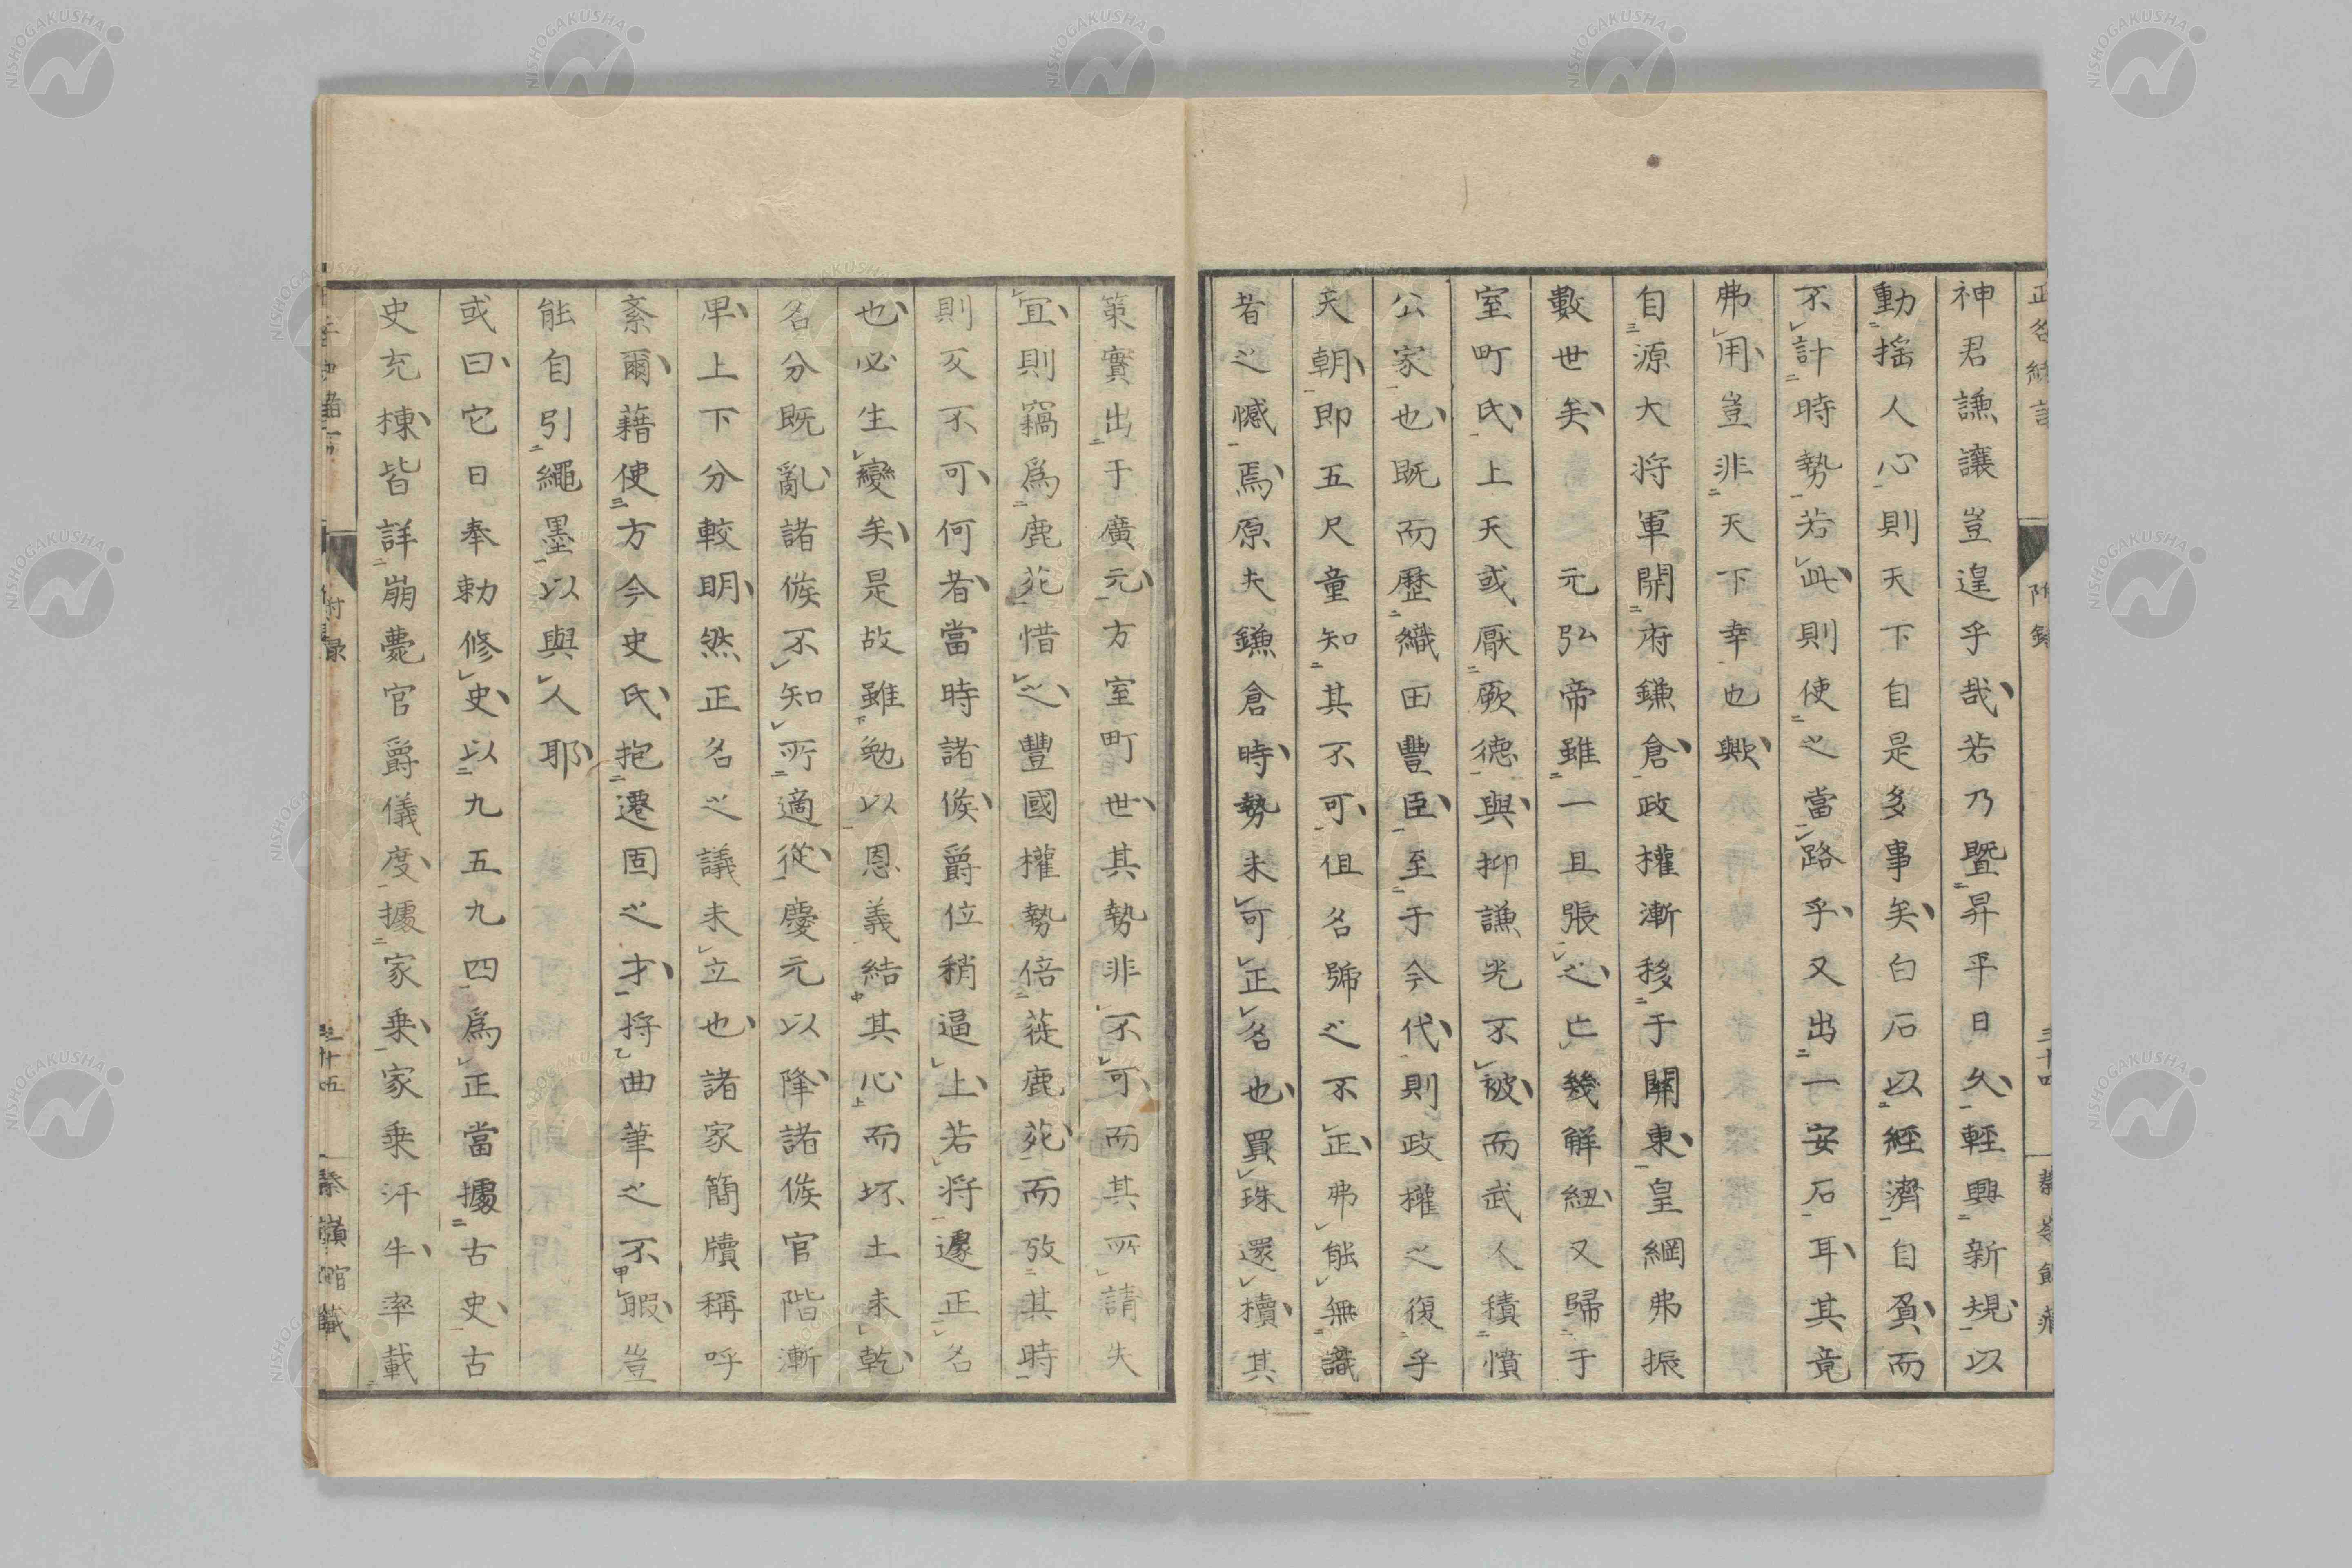 神君謙讓豈遑乎哉若乃曁昇平日久輕興新規以
動搖人心則天下自是多事矣白石以經濟自負而
不計時勢若此則使之當路乎又出一安石耳其竟
弗用豈非天下幸也歟
自源大将軍開府鎌倉政權漸移于關東皇綱弗振
數世矣元弘帝雖一旦張之亡幾解紐又歸于
室町氏上天或厭厥德與抑謙光不被而武人積憤
公家也既而歷織田豐臣至于今代則政權之復乎
天朝即五尺童知其不可但名號之不正弗能無識
者之憾焉原夫鎌倉時勢未可正名也買珠還櫝其
策實出于廣元方室町世其勢非不可而其所請失
宜則竊爲鹿苑惜之豐國權勢倍蓰鹿苑而攷其時
則又不可何者當時諸侯爵位稍逼上若将遽正名
也必生變矣是故雖勉以恩義結其心而坏土未乾
名分既亂諸侯不知所適從慶元以降諸侯官階漸
卑上下分較明然正名之議未立也諸家簡牘稱呼
紊爾藉使方今史氏抱遷固之才将曲筆之不暇豈
能自引繩墨以與人耶
或曰它日奉勅修史以九五九四爲正當據古史古
史充棟皆詳崩薨官爵儀度據家乗家乗汗牛率載
附録
三十五
NISHOGAKUSHA